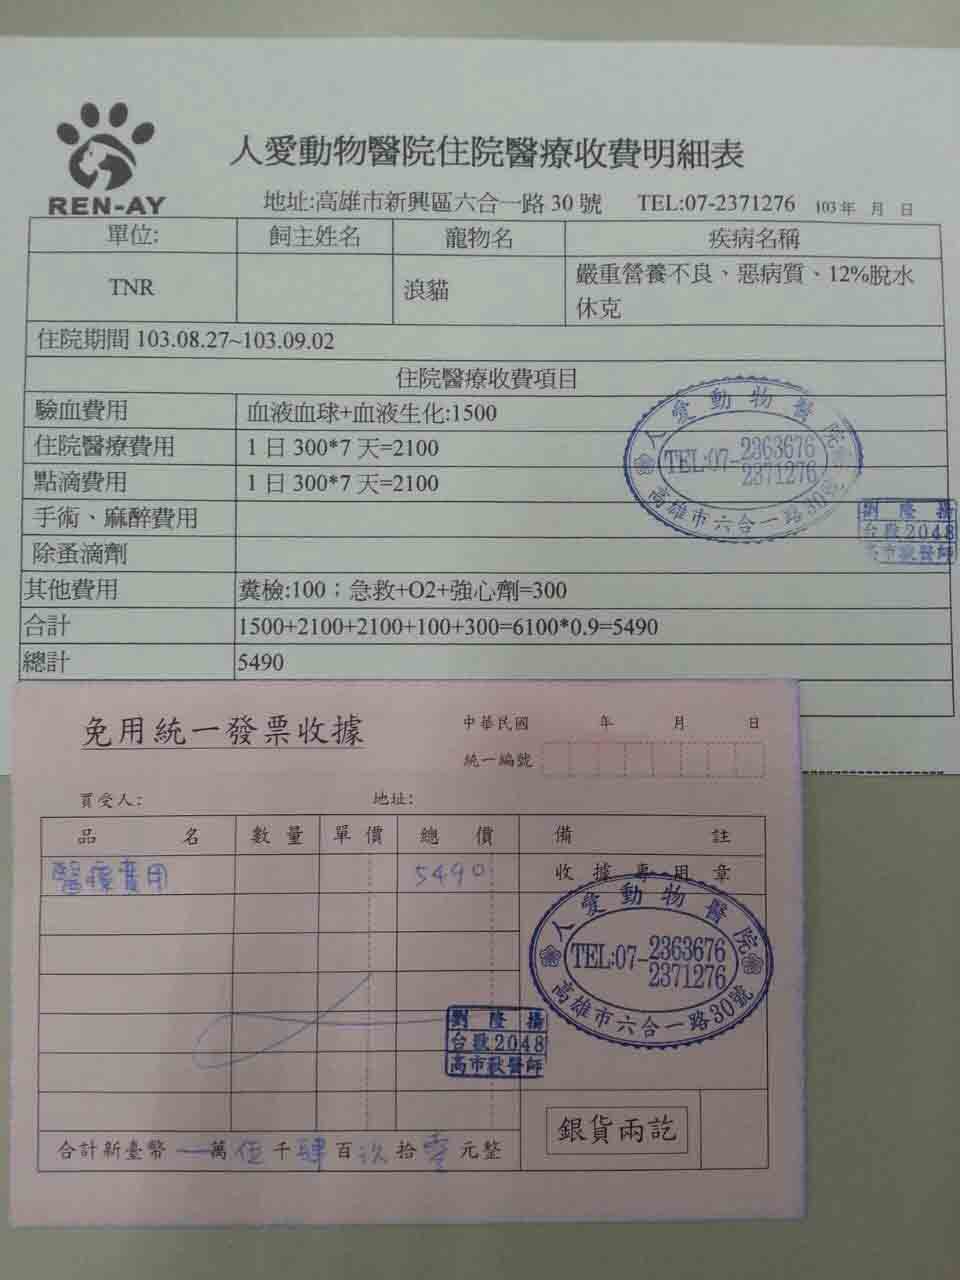 人愛動物醫院住院醫療收費明細表
REN-AY
地址:高雄市新興區六合一路 30 號 TEL:07-2371276 103 年 月 日
單位: 飼主姓名 寵物名 疾病名稱
TNR 浪貓 嚴重營養不良、惡病質、12%脫水
休克
住院期間 103.08.27~103.09.02
住院醫療收費項目
驗血費用 血液血球+血液生化:1500
住院醫療費用 1 日 300*7 天=2100
點滴費用 1 日 300*7 天=2100
手術、麻醉費用
除蚤滴劑
其他費用 糞檢:100;急救+O2+強心劑=300
合計 1500+2100+2100+100+300=6100*0.9=5490
總計 5490
人愛動物醫院
TEL:07-2363676
2371276
高雄市六合一路30號
劉隆揚
台獸2048
高市獸醫師
免用統一發票收據
中華民國 年 月 日
統一編號
買受人: 地址:
品名 數量 單價 總價 備註
醫療費用 5490 收據專用章
人愛動物醫院
TEL:07-2363676
2371276
高雄市六合一路30號
劉隆揚
台獸2048
高市獸醫師
合計新臺幣 萬 伍 千 肆 百 拾 零 元整
銀貨兩訖